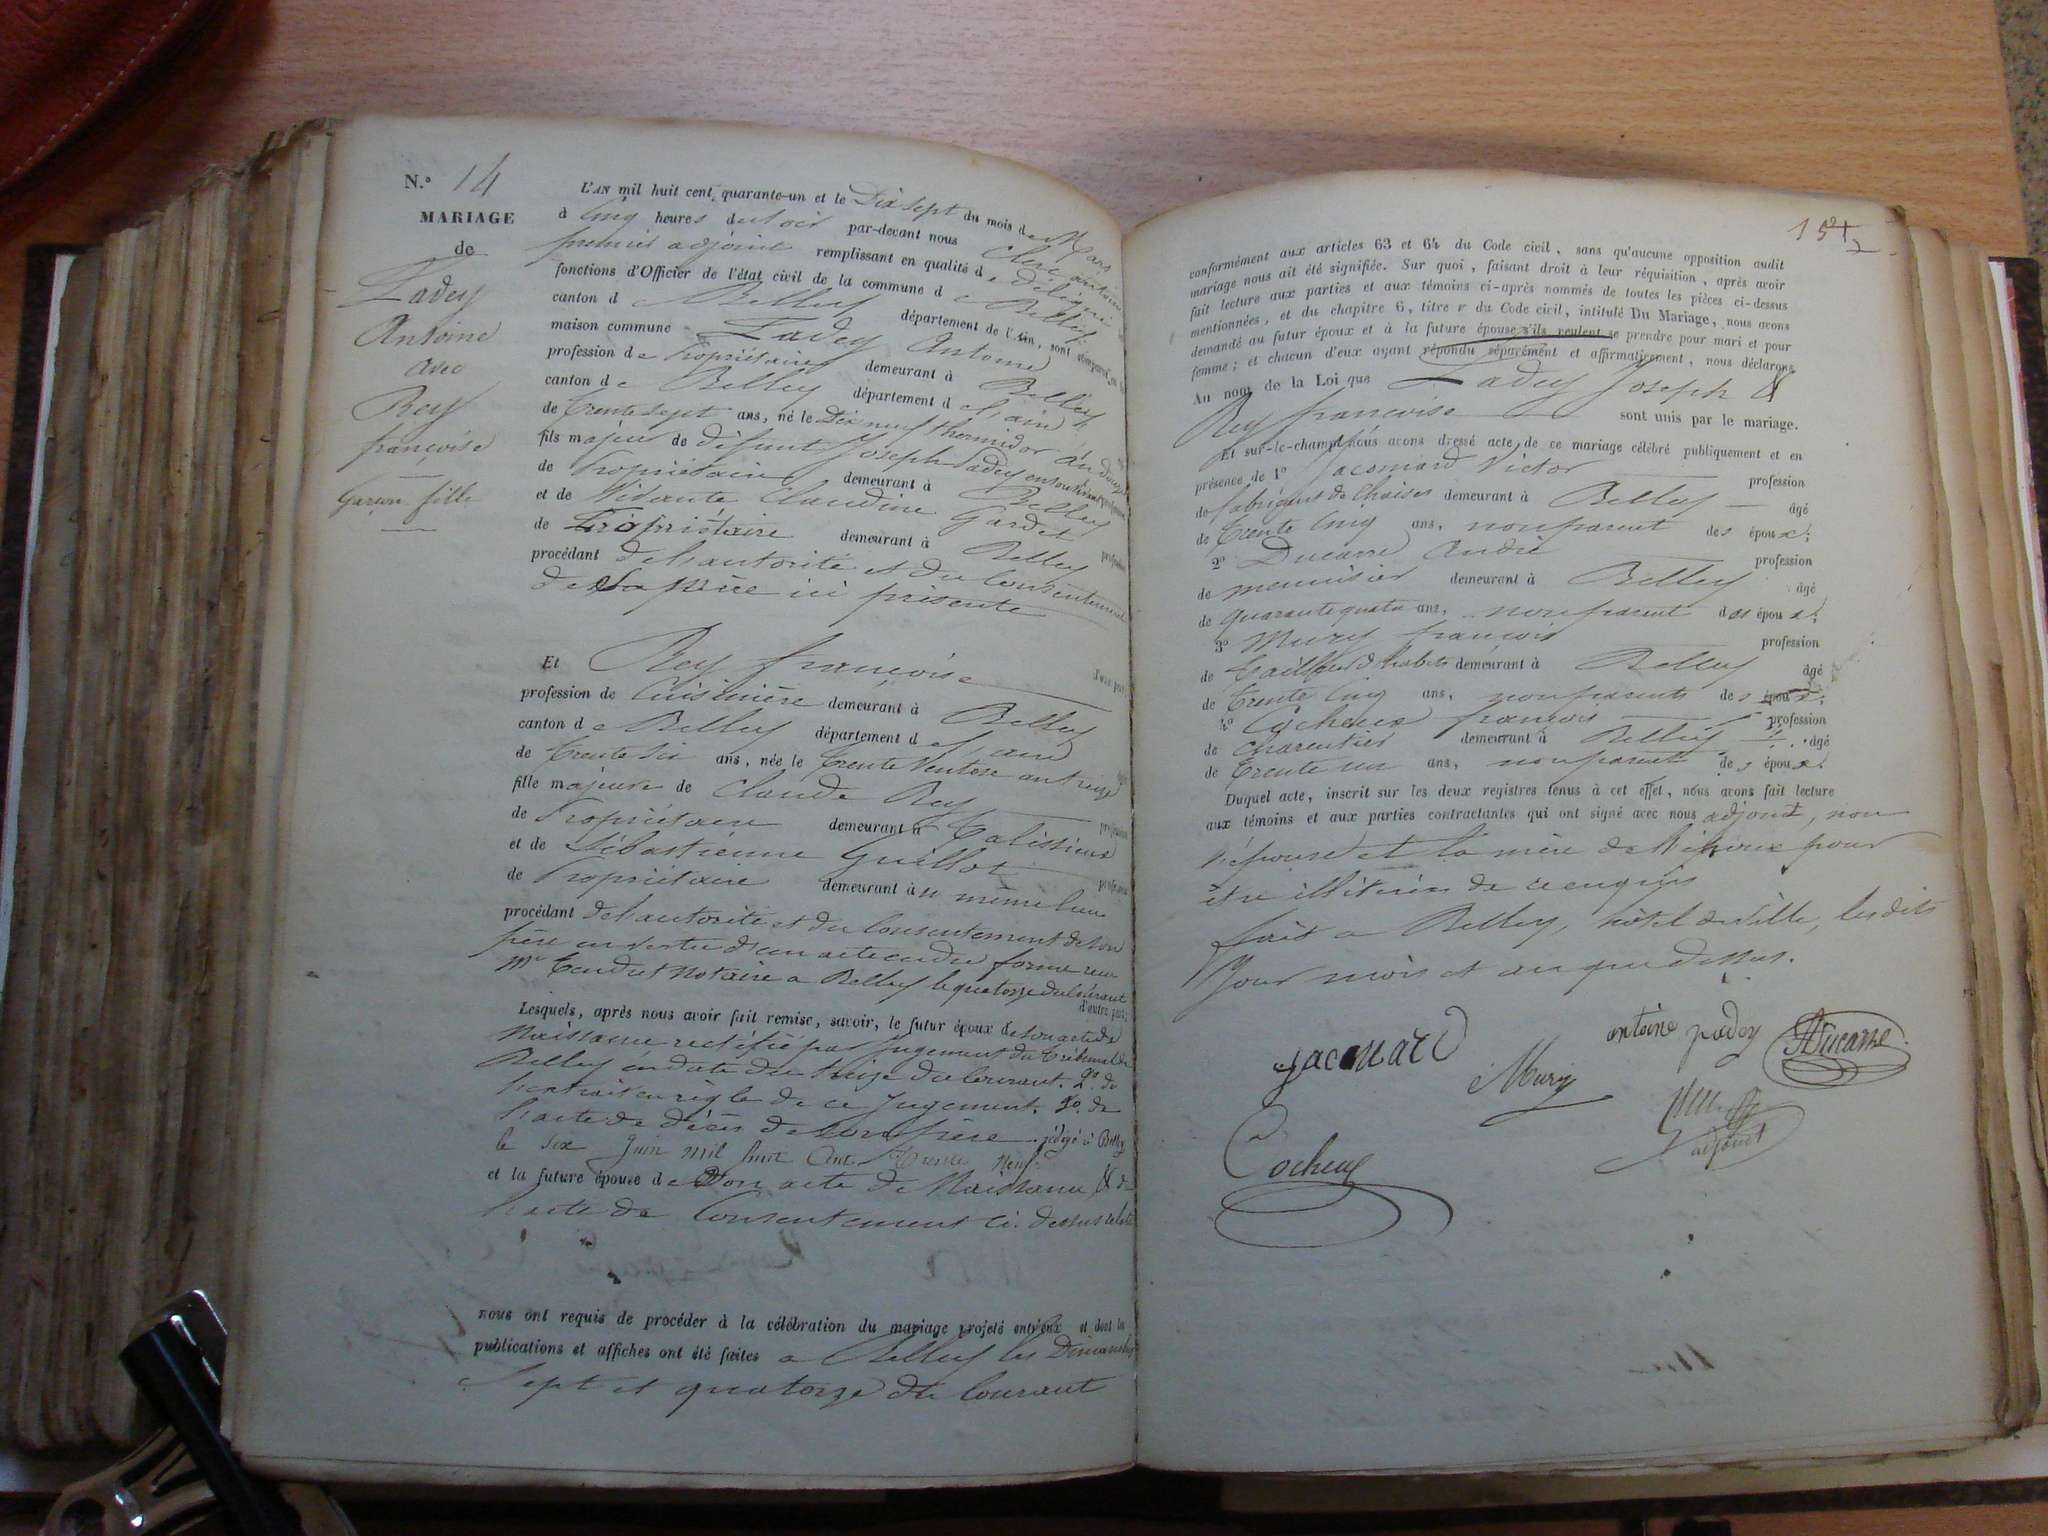 N.º 14
MARIAGE
de
Padey
Antoine
avec
Rey
françoise
Garçon fille
L'AN mil huit cent quarante-un et le Dix sept du mois de Mars
à Cinq heures du soir par-devant nous Clerc antoine
premier adjoint remplissant en qualité de délégué
fonctions d'Officier de l'état civil de la commune de Belley
canton de Belley département de l'Ain, sont comparus en la
maison commune Padey Antoine
profession de Propriétaire demeurant à Belley
canton de Belley département de l'ain
de trente sept ans, né le Dix neuf thermidor an douze
fils majeur de défunt Joseph Padey en son vivant profession
de Propriétaire demeurant à Belley
et de Vivante Claudine Gardet
de Propriétaire demeurant à Belley profession
procédant de l'autorité et du Consentement
de Sa mère ici présente
d'une part
Et Rey françoise
profession de Cuisinière demeurant à Belley
canton de Belley département de l'ain
de trente six ans, née le trente Ventose an treize
fille majeure de Claude Rey profession
de Propriétaire demeurant à Talissieu
et de Sébastienne Guillot profession
de Propriétaire demeurant au même lieu
procédant de l'autorité et du Consentement de son
père en vertu d'un acte en due forme reçu
Me Tendret Notaire a Belley le quatorze du Courant
d'autre part.
Lesquels, après nous avoir fait remise, savoir, le futur époux de son acte de
Naissance rectifié par Jugement du tribunal de
Belley en date du treize du Courant. 2º. de
l'extrait en règle de ce Jugement. 3º. de
l'acte de décès de son père rédigé à Belley
le six Juin mil huit Cent trente Neuf
et la future épouse de Son acte de Naissance & de
l'acte de Consentement ci-dessus relaté
nous ont requis de procéder à la célébration du mariage projeté entr'eux et dont les
publications et affiches ont été faites a Belley les Dimanches
Sept et quatorze du Courant
conformément aux articles 63 et 64 du Code civil, sans qu'aucune opposition audit
mariage nous ait été signifiée. Sur quoi, faisant droit à leur réquisition, après avoir
fait lecture aux parties et aux témoins ci-après nommés de toutes les pièces ci-dessus
mentionnées, et du chapitre 6, titre v du Code civil, intitulé Du Mariage, nous avons
demandé au futur époux et à la future épouse s'ils veulent se prendre pour mari et pour
femme; et chacun d'eux ayant répondu séparément et affirmativement, nous déclarons
Au nom de la Loi que Padey Joseph &
Rey françoise sont unis par le mariage.
Et sur-le-champ nous avons dressé acte de ce mariage célébré publiquement et en
présence de 1º Jacomard Victor profession
de fabriquant de Chaises demeurant à Belley âgé
de trente Cinq ans, non parent des époux;
2º Ducarre André profession
de menuisier demeurant à Belley âgé
de quarante quatre ans, non parent des époux;
3º Mury françois profession
de tailleur d'habits demeurant à Belley âgé
de trente Cinq ans, non parents des époux;
4º Cocheux françois profession
de charpentier demeurant à Belley âgé
de trente un ans, non parent des époux.
Duquel acte, inscrit sur les deux registres tenus à cet effet, nous avons fait lecture
aux témoins et aux parties contractantes qui ont signé avec nous adjoint, non
l'épouse et la mère de l'époux pour
être illitérées de ce enquis
fait a Belley, hôtel de Ville, les dits
Jour mois et an que dessus.
Jacomard
antoine padey
ADucarre
Mury
adjoint
Cocheux